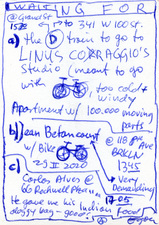 WAITING FOR
@Grand St
15Z5 to 341 W 100 St.
a) the D train to go to
LINUS CORRAGGIO'S
Studio (meant to go
with too cold +
windy
Apartment w/ 100.000 moving
parts
b) Jean Betancourt @ 118
w/ Bike Ave
BRKLN
1745
25 II 2020
Very
Demanding
c) Carlos Alves @
60 Rockwell Place
1705
He gave me his Indian Food
doggy bag - good!